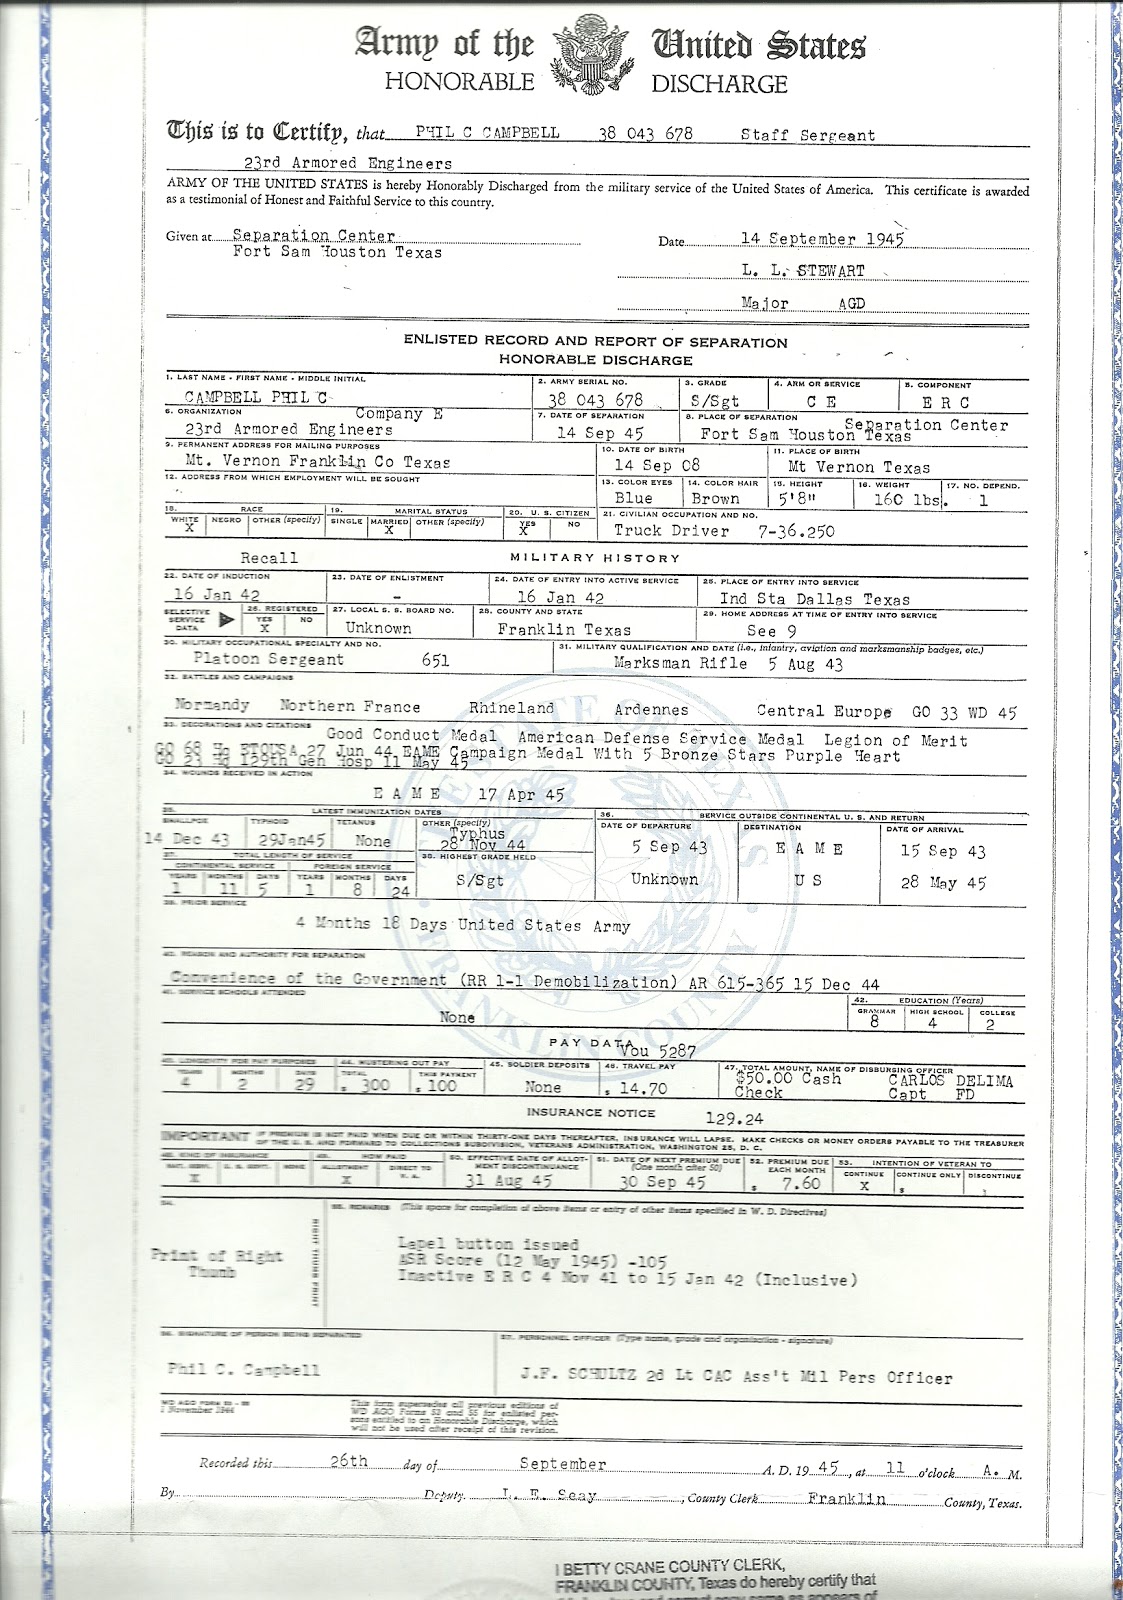 Army of the United States
HONORABLE DISCHARGE
This is to Certify, that PHIL C CAMPBELL 38 043 678 Staff Sergeant
23rd Armored Engineers
ARMY OF THE UNITED STATES is hereby Honorably Discharged from the military service of the United States of America. This certificate is awarded
as a testimonial of Honest and Faithful Service to this country.
Given at Separation Center
Fort Sam Houston Texas
Date 14 September 1945
L. L. STEWART
Major AGD
ENLISTED RECORD AND REPORT OF SEPARATION
HONORABLE DISCHARGE
1. LAST NAME - FIRST NAME - MIDDLE INITIAL 2. ARMY SERIAL NO. 3. GRADE 4. ARM OR SERVICE 5. COMPONENT
CAMPBELL PHIL C 38 043 678 S/Sgt C E E R C
6. ORGANIZATION Company E 7. DATE OF SEPARATION 8. PLACE OF SEPARATION Separation Center
23rd Armored Engineers 14 Sep 45 Fort Sam Houston Texas
9. PERMANENT ADDRESS FOR MAILING PURPOSES 10. DATE OF BIRTH 11. PLACE OF BIRTH
Mt. Vernon Franklin Co Texas 14 Sep 08 Mt Vernon Texas
12. ADDRESS FROM WHICH EMPLOYMENT WILL BE SOUGHT 13. COLOR EYES 14. COLOR HAIR 15. HEIGHT 16. WEIGHT 17. NO. DEPEND.
Blue Brown 5'8" 160 lbs. 1
18. RACE 19. MARITAL STATUS 20. U. S. CITIZEN 21. CIVILIAN OCCUPATION AND NO.
WHITE NEGRO OTHER (specify) SINGLE MARRIED OTHER (specify) YES NO
X X X Truck Driver 7-36.250
Recall MILITARY HISTORY
22. DATE OF INDUCTION 23. DATE OF ENLISTMENT 24. DATE OF ENTRY INTO ACTIVE SERVICE 25. PLACE OF ENTRY INTO SERVICE
16 Jan 42 - 16 Jan 42 Ind Sta Dallas Texas
SELECTIVE SERVICE DATA 26. REGISTERED YES NO 27. LOCAL S. S. BOARD NO. 28. COUNTY AND STATE 29. HOME ADDRESS AT TIME OF ENTRY INTO SERVICE
X Unknown Franklin Texas See 9
30. MILITARY OCCUPATIONAL SPECIALTY AND NO. 31. MILITARY QUALIFICATION AND DATE (i.e., infantry, aviation and marksmanship badges, etc.)
Platoon Sergeant 651 Marksman Rifle 5 Aug 43
32. BATTLES AND CAMPAIGNS
Normandy Northern France Rhineland Ardennes Central Europe GO 33 WD 45
33. DECORATIONS AND CITATIONS Good Conduct Medal American Defense Service Medal Legion of Merit
GO 68 Hq ETOUSA 27 Jun 44 EAME Campaign Medal With 5 Bronze Stars Purple Heart
GO 23 Hq 129th Gen Hosp 11 May 45
34. WOUNDS RECEIVED IN ACTION
E A M E 17 Apr 45
35. LATEST IMMUNIZATION DATES 36. SERVICE OUTSIDE CONTINENTAL U. S. AND RETURN
SMALLPOX TYPHOID TETANUS OTHER (specify) DATE OF DEPARTURE DESTINATION DATE OF ARRIVAL
14 Dec 43 29Jan45 None Typhus 28 Nov 44 5 Sep 43 E A M E 15 Sep 43
37. TOTAL LENGTH OF SERVICE 38. HIGHEST GRADE HELD
CONTINENTAL SERVICE FOREIGN SERVICE
YEARS MONTHS DAYS YEARS MONTHS DAYS
1 11 5 1 8 24 S/Sgt Unknown U S 28 May 45
39. PRIOR SERVICE
4 Months 18 Days United States Army
40. REASON AND AUTHORITY FOR SEPARATION
Convenience of the Government (RR 1-1 Demobilization) AR 615-365 15 Dec 44
41. SERVICE SCHOOLS ATTENDED 42. EDUCATION (Years)
None GRAMMAR HIGH SCHOOL COLLEGE
8 4 2
PAY DATA Vou 5287
43. LONGEVITY FOR PAY PURPOSES 44. MUSTERING OUT PAY 45. SOLDIER DEPOSITS 46. TRAVEL PAY 47. TOTAL AMOUNT, NAME OF DISBURSING OFFICER
YEARS MONTHS DAYS TOTAL THIS PAYMENT $50.00 Cash CARLOS DELIMA
4 2 29 $ 300 $ 100 None $ 14.70 Check Capt FD
INSURANCE NOTICE 129.24
IMPORTANT IF PREMIUM IS NOT PAID WHEN DUE OR WITHIN THIRTY-ONE DAYS THEREAFTER, INSURANCE WILL LAPSE. MAKE CHECKS OR MONEY ORDERS PAYABLE TO THE TREASURER
OF THE U. S. AND FORWARD TO COLLECTIONS SUBDIVISION, VETERANS ADMINISTRATION, WASHINGTON 25, D. C.
48. KIND OF INSURANCE 49. HOW PAID 50. EFFECTIVE DATE OF ALLOTMENT DISCONTINUANCE 51. DATE OF NEXT PREMIUM DUE (One month after 50) 52. PREMIUM DUE EACH MONTH 53. INTENTION OF VETERAN TO
NAT. SERV. U. S. GOVT. NONE ALLOTMENT DIRECT TO V. A. CONTINUE CONTINUE ONLY DISCONTINUE
X X 31 Aug 45 30 Sep 45 $ 7.60 X $
54. 55. REMARKS (This space for completion of above items or entry of other items specified in W. D. Directives)
RIGHT THUMB PRINT
Print of Right
Thumb
Lapel button issued
ASR Score (12 May 1945) -105
Inactive E R C 4 Nov 41 to 15 Jan 42 (Inclusive)
56. SIGNATURE OF PERSON BEING SEPARATED 57. PERSONNEL OFFICER (Type name, grade and organization - signature)
Phil C. Campbell J.F. SCHULTZ 2d Lt CAC Ass't Mil Pers Officer
WD AGO FORM 53 - 55
1 November 1944
This form supersedes all previous editions of
WD AGO Forms 53 and 55 for enlisted per-
sons entitled to an Honorable Discharge, which
will not be used after receipt of this revision.
Recorded this 26th day of September A. D. 19 45, at 11 o'clock A. M.
By Deputy. L. E. Seay, County Clerk Franklin County, Texas.
THE STATE OF TEXAS
FRANKLIN COUNTY
I BETTY CRANE COUNTY CLERK,
FRANKLIN COUNTY, Texas do hereby certify that